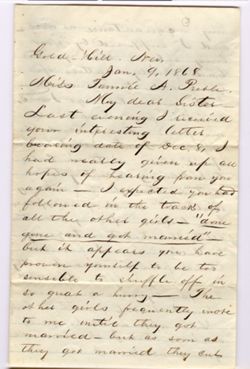 Gold-Hill Nev.
Jan. 9, 1868
Miss Fannie A.
My dear Sister
Last evening I received
your interesting letter
bearing date of Dec 8, I
had nearly given up all
hopes of hearing from you
again — I expected you had
followed in the track of
all the other girls — "done
gone and got married" —
but it appears you have
proven yourself to be too
sensible to shuffle off in
so great a hurry — The
other girls frequently wrote
to me until they got
married — but as soon as
they got married they cut